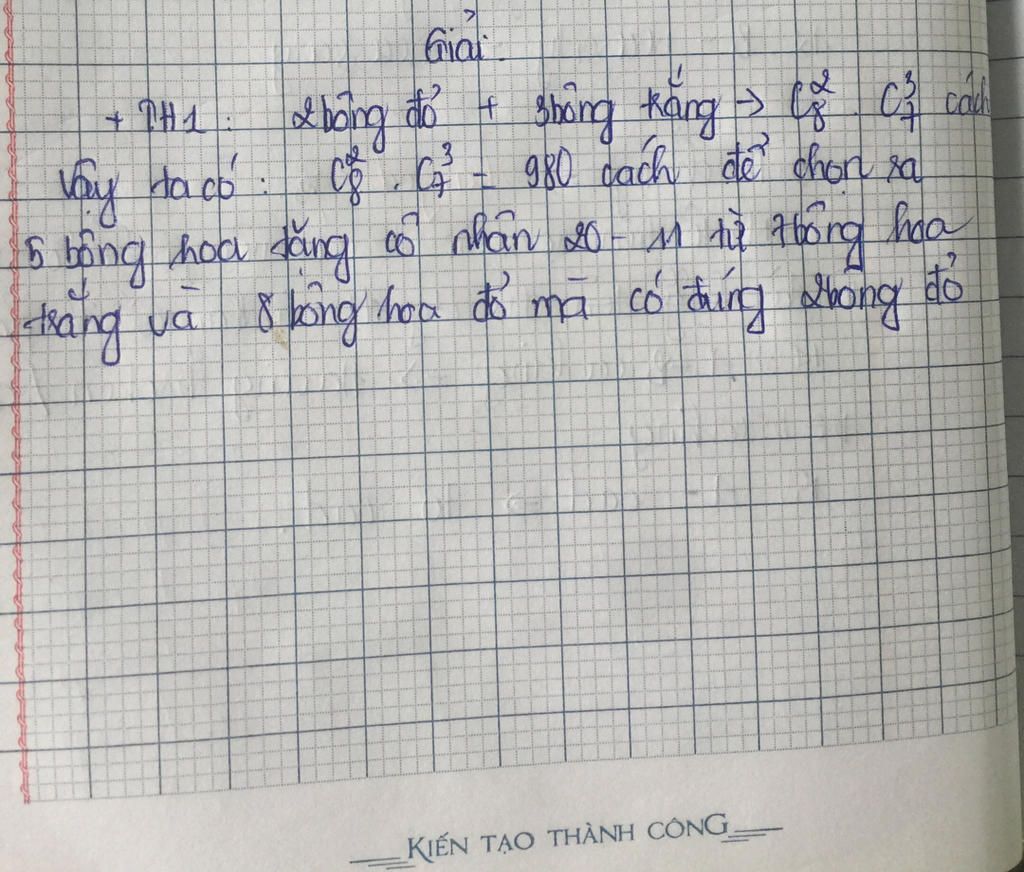 Giải.
+ TH1: 2bông đỏ + 3bông trắng → C₈² . C₇³ cách
Vậy ta có: C₈² . C₇³ = 980 cách để chọn ra
5 bông hoa tặng cô nhân 20 - 11 từ 7bông hoa
trắng và 8 bông hoa đỏ mà có đúng 2bông đỏ
KIẾN TẠO THÀNH CÔNG